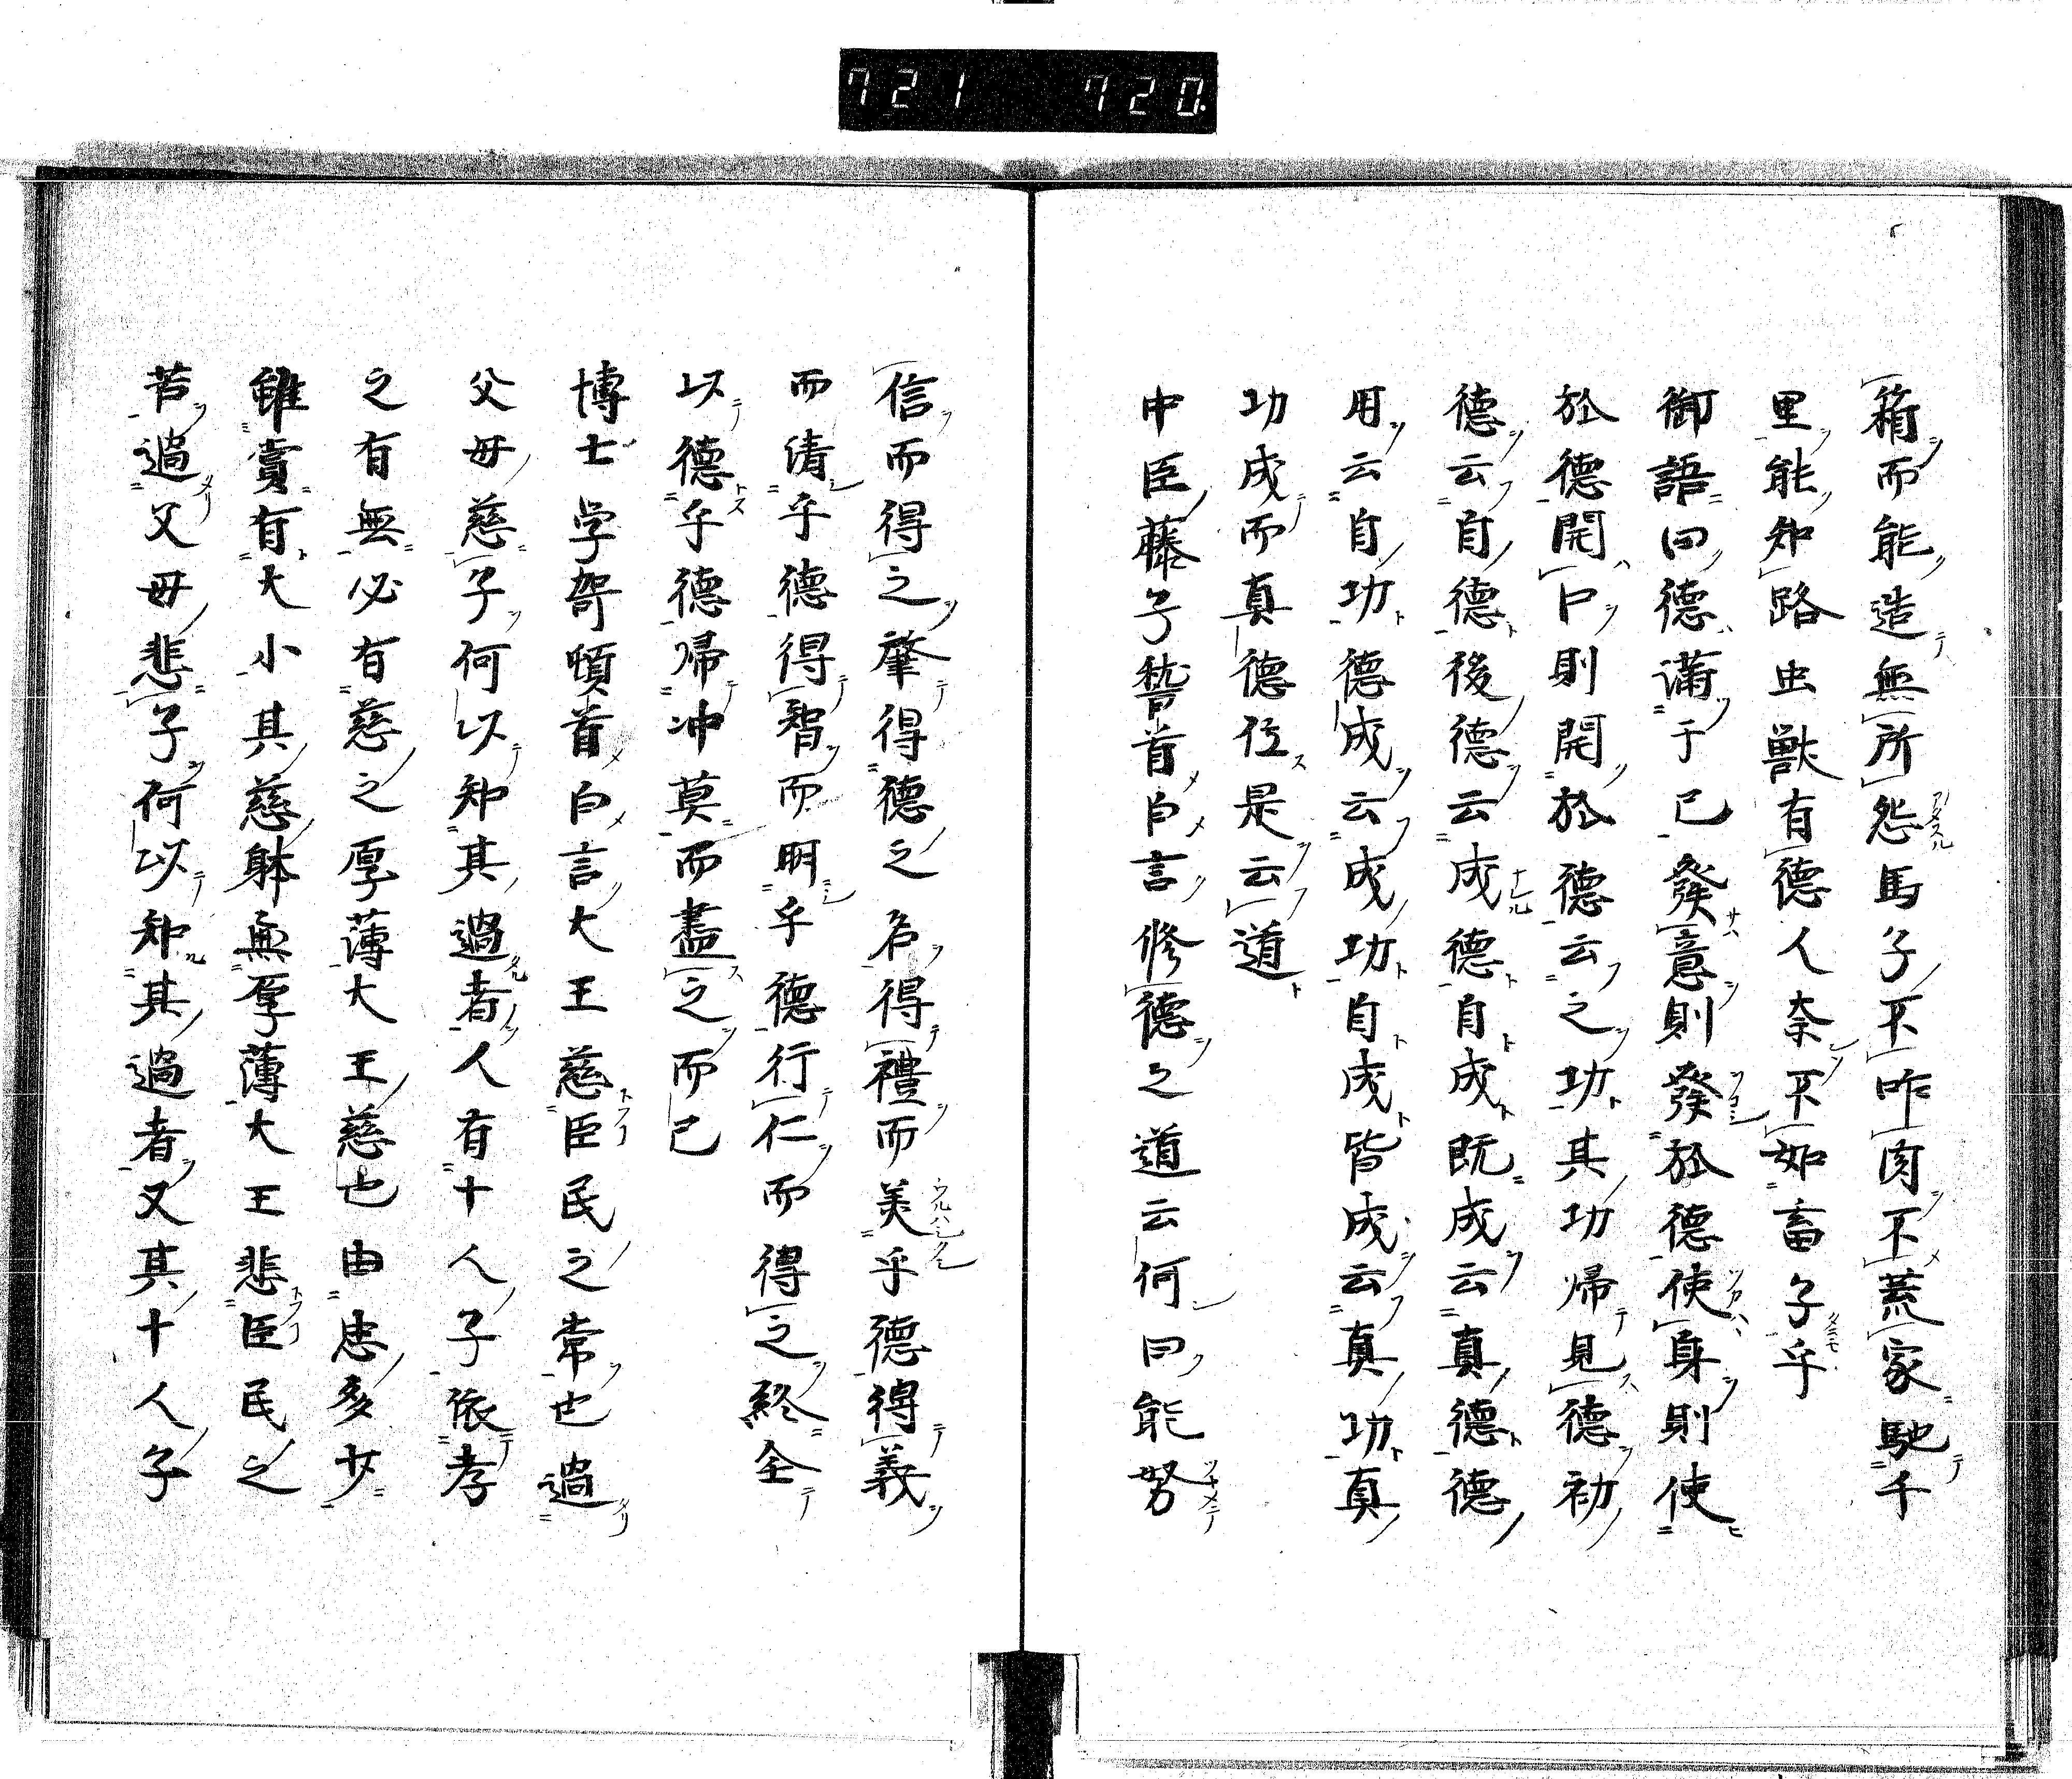 721 720
箱而能造無所怨馬子不咋肉不荒家馳千
里能知路虫獣有德人奈不如畜子乎
御語曰德滿于己發意則發於德使身則使
於德開口則開於德云之功其功帰見德初
德云自德後德云成德自成既成云真德德
用云自功德成云成功自成皆成云真功真
功成而真德位是云道
中臣藤子䭫首白言修德之道云何曰能努
信而得之肇得德之名得禮而美乎德得義
而清乎德得智而明乎德行仁而得之終全
以德乎德帰冲莫而盡之而已
博士学哿頓首白言大王慈臣民之常也過
父母慈子何以知其過者人有十人子依孝
之有無必有慈之厚薄大王慈也由忠多少
雖賞有大小其慈躰無厚薄大王悲臣民之
苦過父母悲子何以知其過者又其十人子